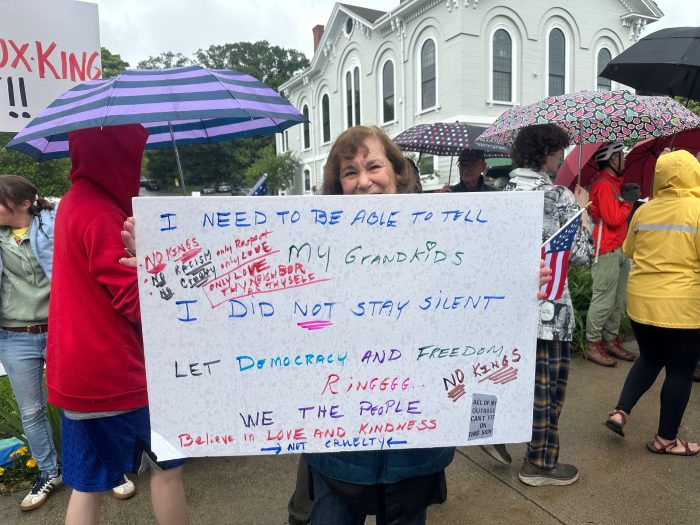 OX-KING
!!
I NEED TO BE ABLE TO TELL
NO KINGS
NO RACISM
NO CRUELTY
only Respect
only LOVE
ONLY LOVE
THY NEIGHBOR
AS THYSELF
MY GRANDKIDS
I DID NOT STAY SILENT
LET DEMOCRACY AND FREEDOM
RINGGGG..
NO KINGS
WE THE PEOPLE
Believe in LOVE AND KINDNESS
NOT CRUELTY
ALL OF MY
OUTRAGE
CAN'T FIT
ON THIS SIGN